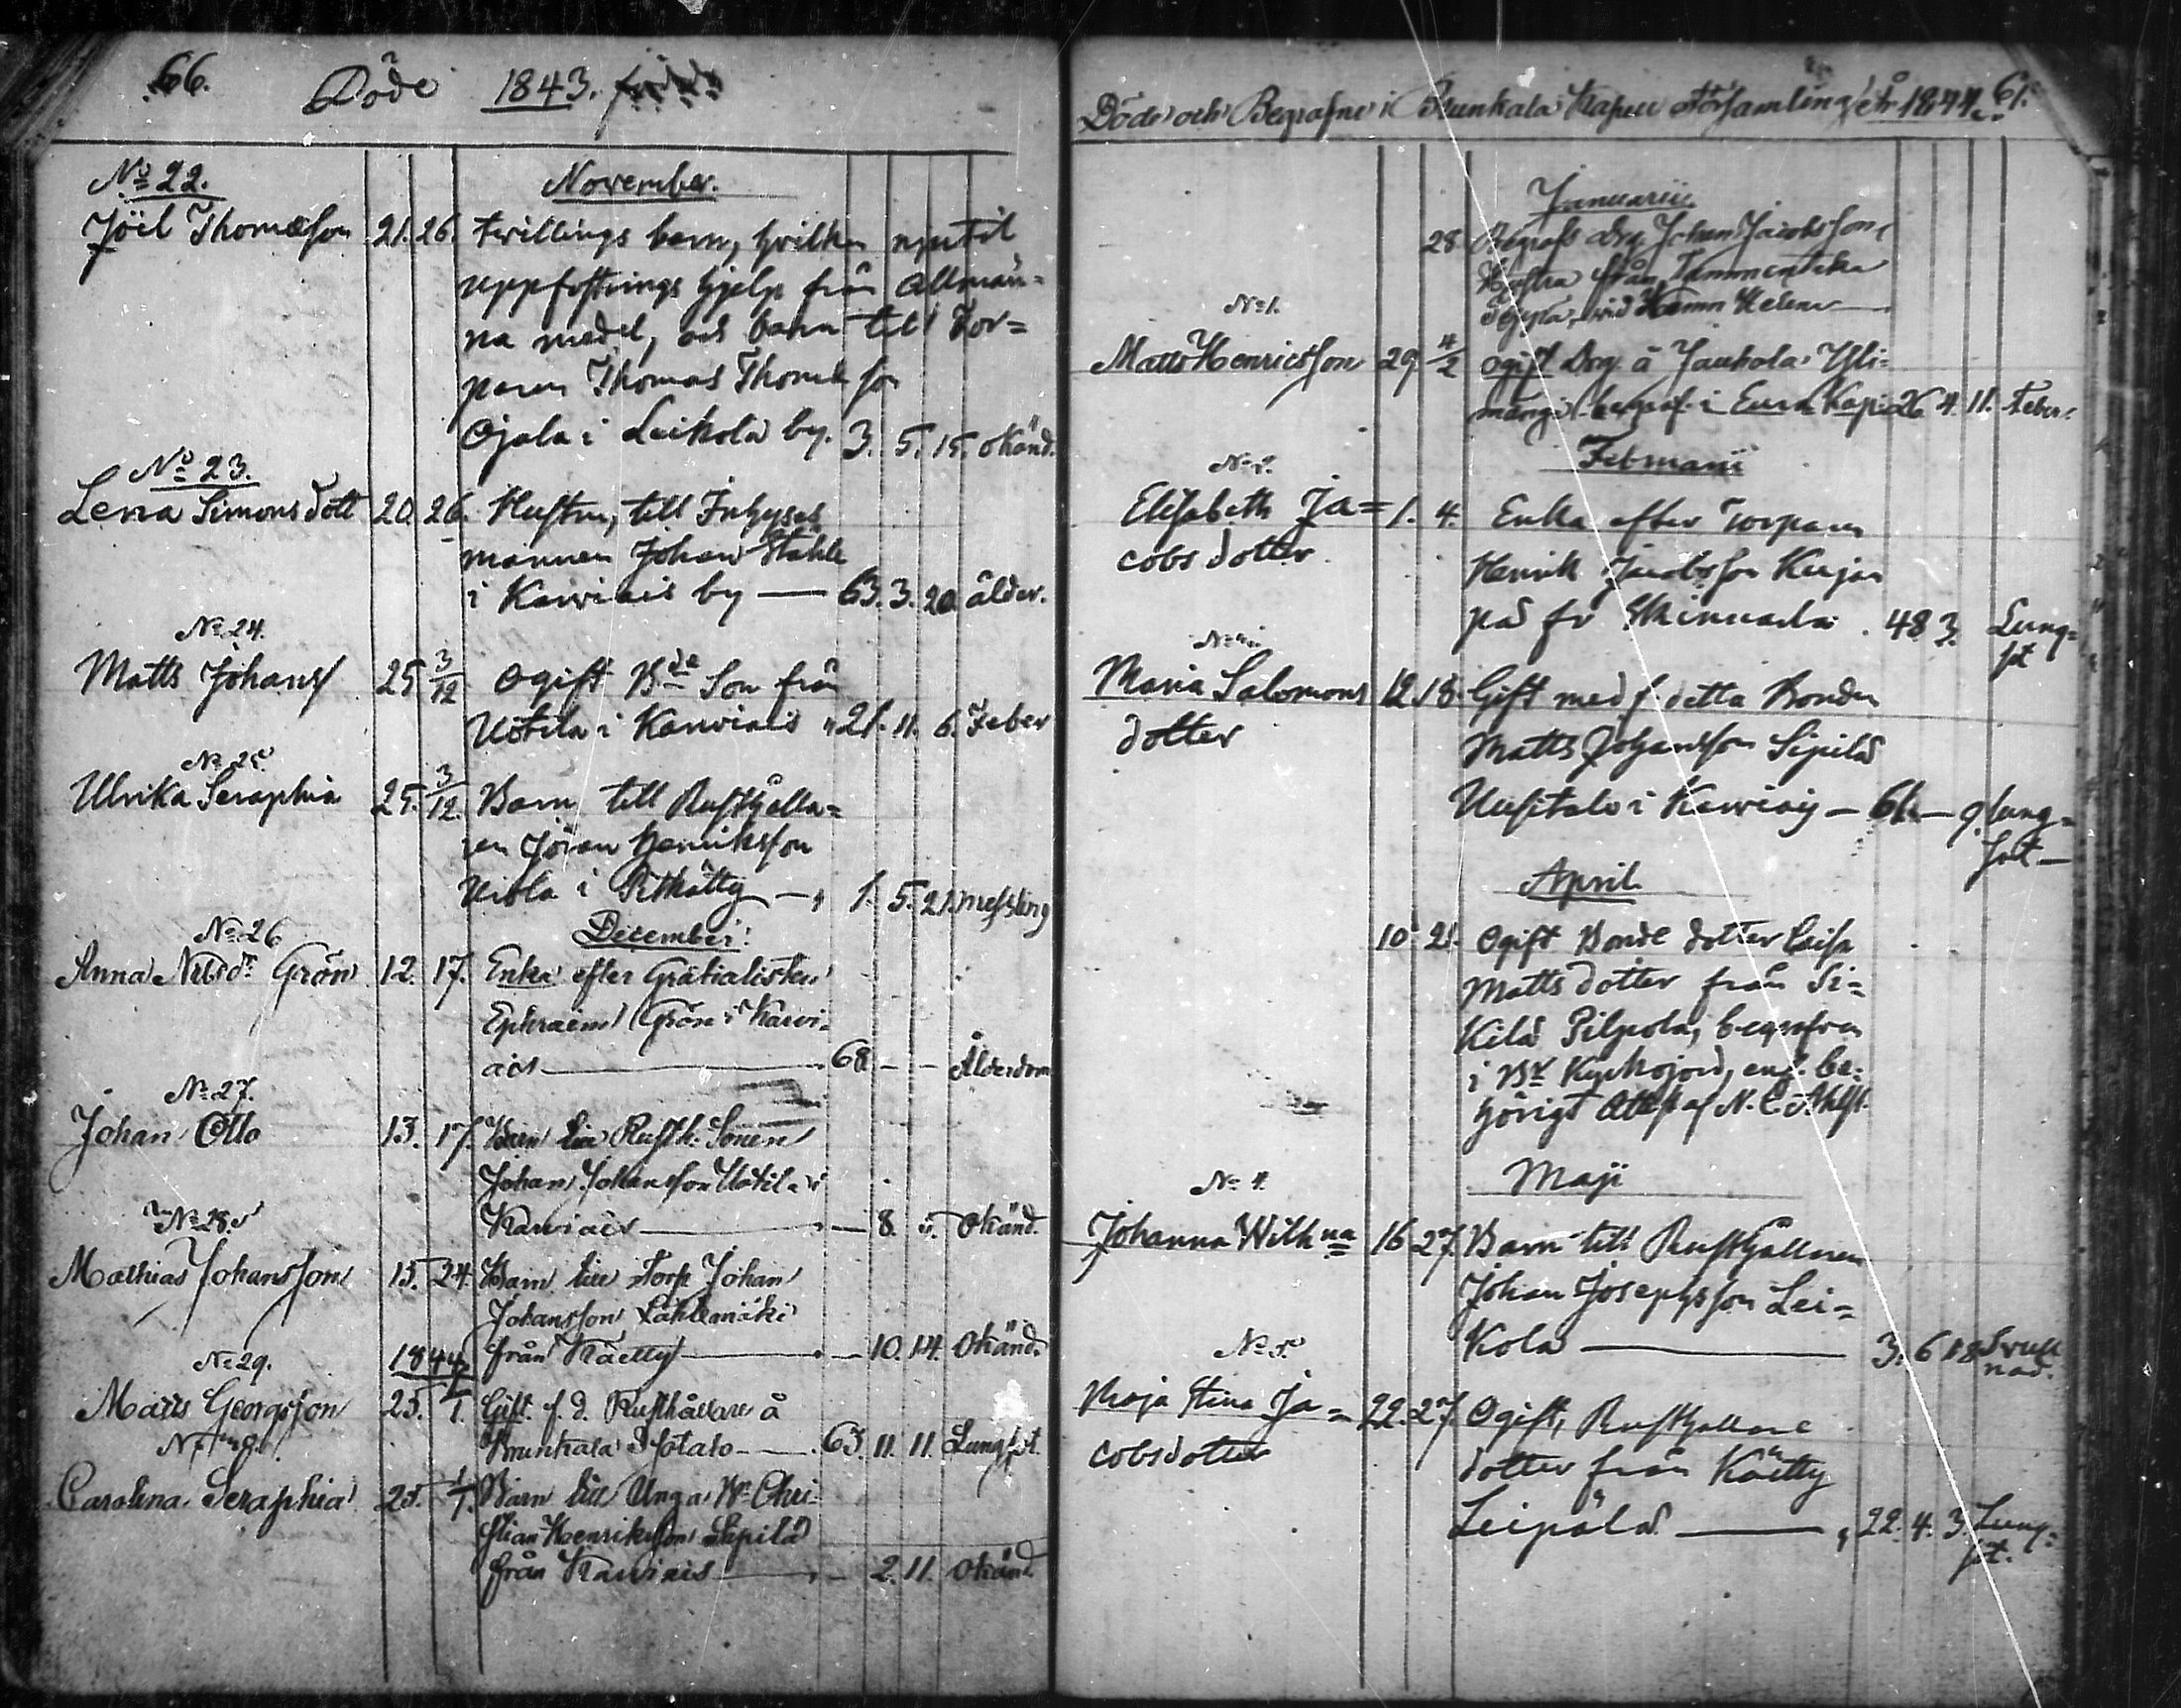 66. Döde 1843.
No 22. November.
Joël Thomæson 21. 26. twillings barn, hvilken njutit
uppfostrings hjelp från Allmän-
na medel, och barn till Tor-
paren Thomas Thomæson
Ojala i Leikola by. 3. 5. 15. okänd.
No 23.
Lena Simons dott 20. 26. Hustru, till Inhyses
mannen Johan Ståhle
i Karviais by — 63. 3. 20. ålder.
No 24.
Matts Johans 25 3/12 Ogift Bde Son från
Uotila i Karviais 21. 11. 6. Feber
No 25.
Ulrika Seraphia 25. 3/12. Barn till Rusthålla-
ren Jöran Henriksson
Uvola i Pitkätty — 1. 5. 21. messling
No 26 December.
Anna Nilsdr Grön 12. 17. Enka efter Gratialisten
Ephraim Grön i Karvi-
ais — 68 — — Ålderdom
No 27.
Johan Otto 13. 17. Barn till Rusth. Sonen
Johan Johansson Uotila i
Karviais — 8. 5. Okänd.
No 28.
Mathias Johansson 15. 24. Barn till Torp Johan
Johansson Lähtemäki
från Kätty — 10. 14. Okänd.
No 29. 1844
Matts Georgsson 25. 1/1. Gift. f. d. Rusthållare å
Brunkala Isotalo — 63. 11. 11. Lungst.
Carolina Seraphia 25. 1/1. Barn till Unga Bn Chri-
stian Henriksson Sepilä
från Karviais — 2. 11. Okänd
Döde och Begrafne i Brunkala Kapell Församling år 1844. 61.
Januarii
28 Begrafs Drg. Johan Jacobssons
Hustra från Tammentaka
No 1.
Matts Henricsson 29 4/2 ogift Drg å Jauhola Yli-
mängi begraf. i Eura Kap. 26 4. 11. Feber.
Februarii
No 2.
Elisabeth Ja= 1. 4. Enka efter Torparen
cobs dotter Henrik Jacobsson Kujan
på 48 3. Lung=
st
No 3.
Maria Salomons 12 18. Gift med f. detta Bonden
dotter Matts Johansson Sipilä
Uusitalo i Karviais — 61. — 9. lung=
sot —
April
10 21. Ogift Bonde dotter Caisa
Matts dotter från Si=
kilä Pilpola, begrafven
i Kyrkojord, enl. be=
hörigt Attest af N. C. Ahlst.
Maji
No 4.
Johanna Wilhna 16 27. Barn till Rusthållaren
Johan Josephsson Lei=
kola — 3. 6 18 Svull
nad.
No 5.
Maja Stina Ja= 22. 27. Ogift, Rusthållare
cobsdotter dotter från Kätty
Leipälä — 22. 4. 3. Lung=
st.